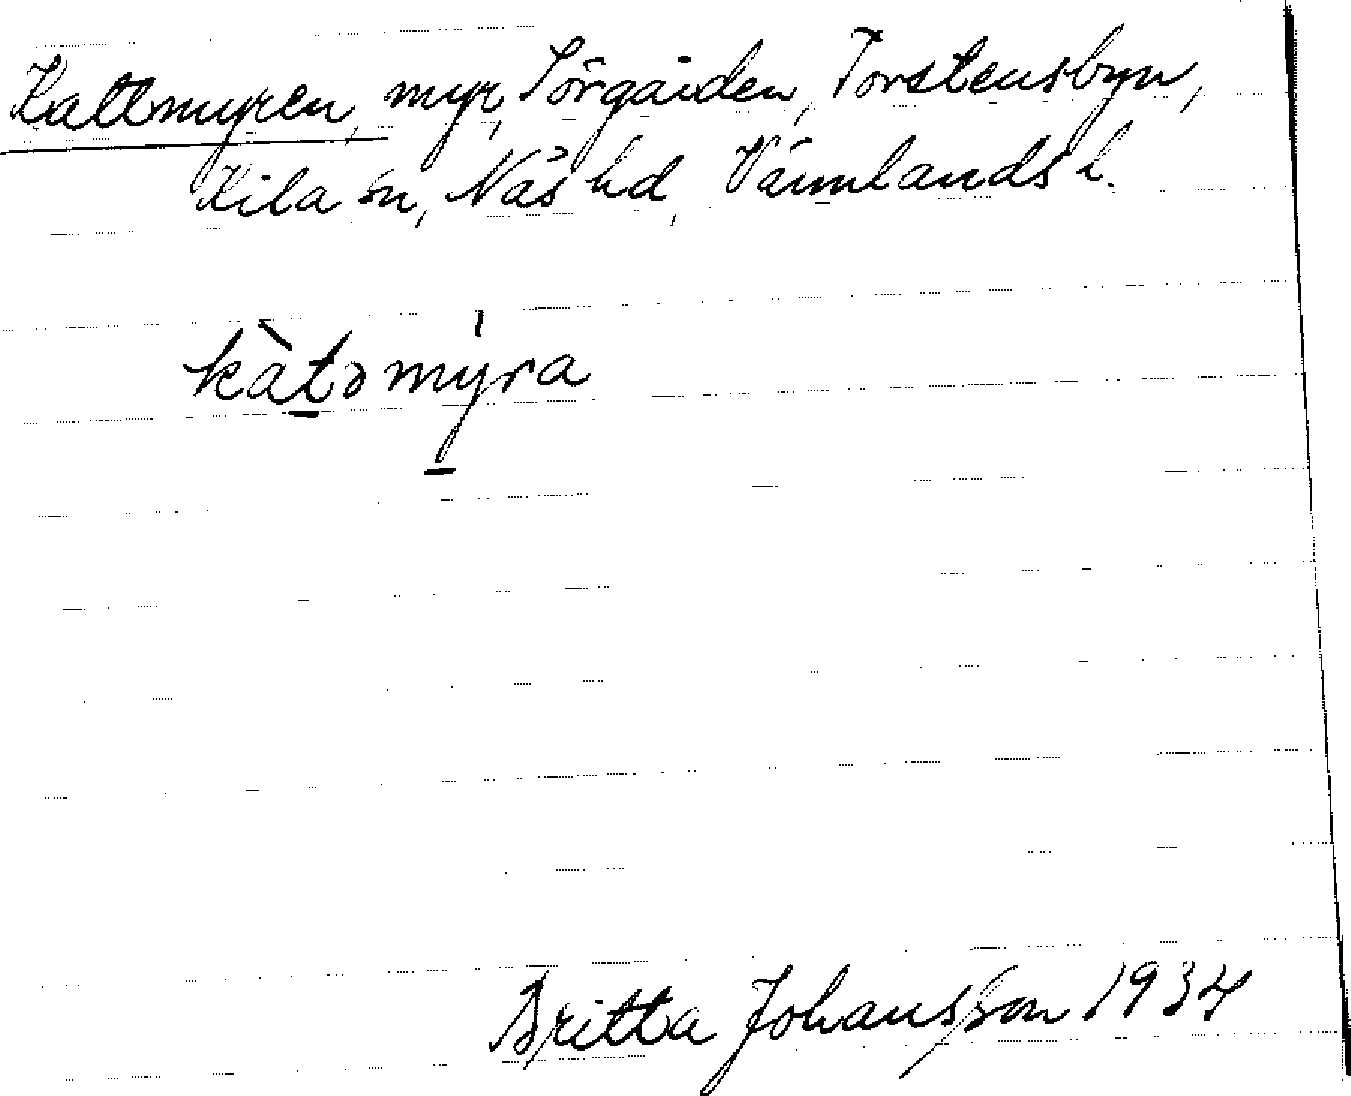 Kattmyren, myr, Sörgården, Torstensbyn,
Kila sn, Näs hd, Värmlands l.
kàtəmýra
Britta Johansson 1934